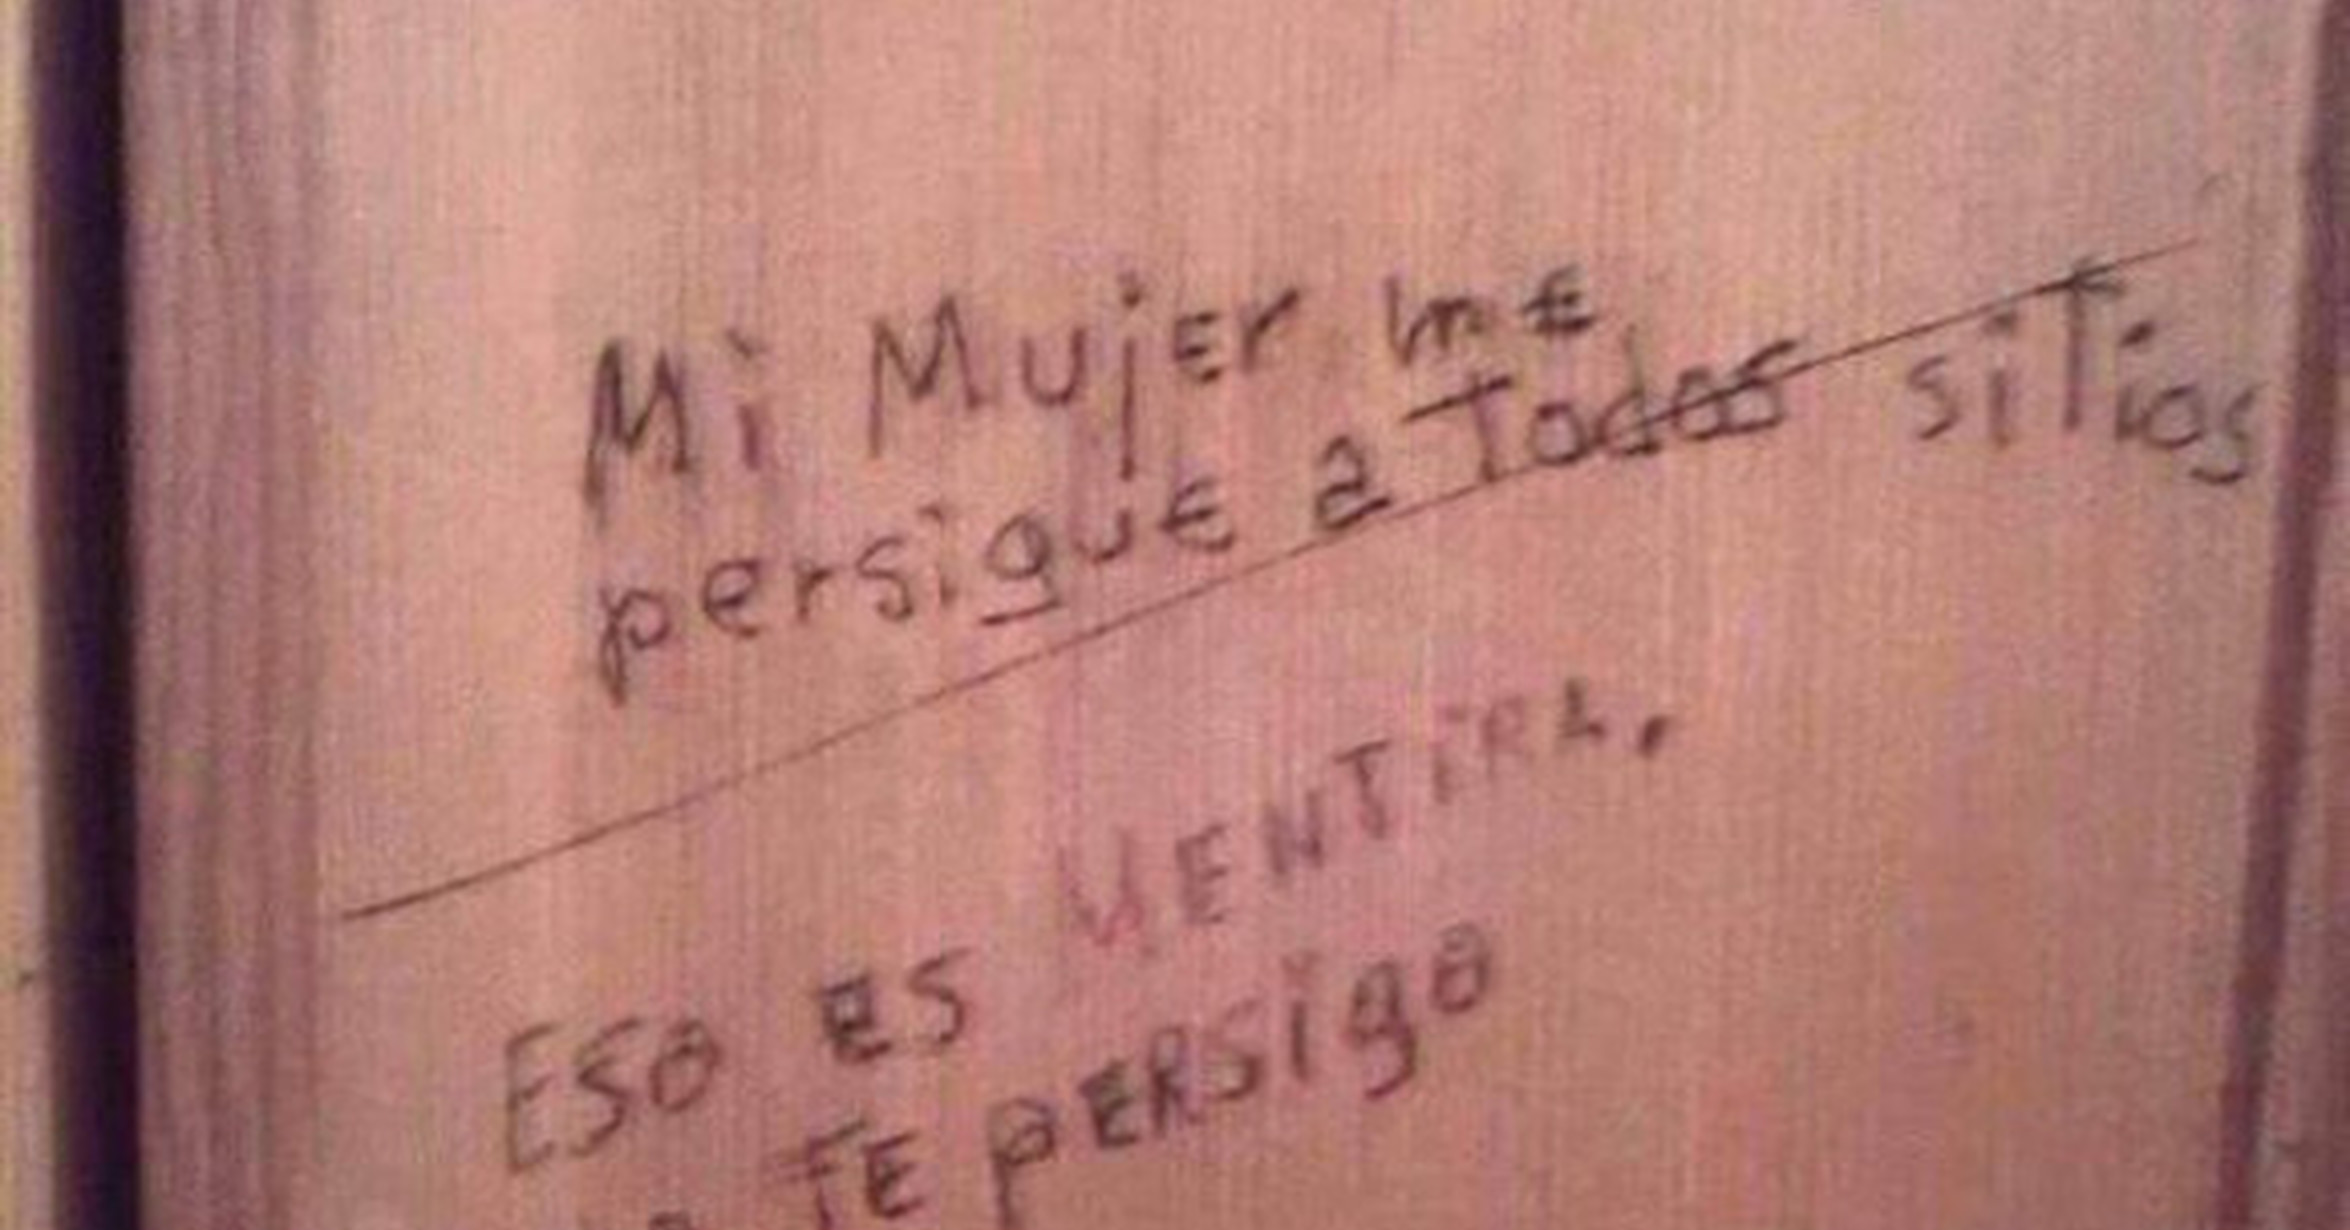 Mi Mujer me
persigue a Todos sitios
Eso es MENTIRA.
TE PERSigo